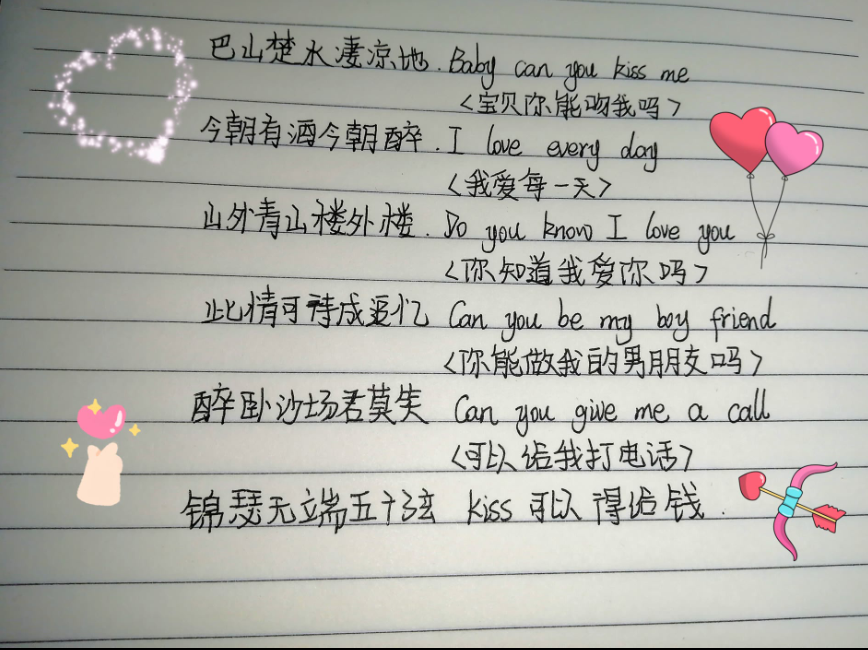 巴山楚水凄凉地. Baby can you kiss me
<宝贝你能吻我吗>
今朝有酒今朝醉. I love every day
<我爱每一天>
山外青山楼外楼. Do you know I love you
<你知道我爱你吗>
此情可待成追忆 Can you be my boy friend
<你能做我的男朋友吗>
醉卧沙场君莫笑 Can you give me a call
<可以给我打电话>
锦瑟无端五十弦 kiss 可以得给钱.